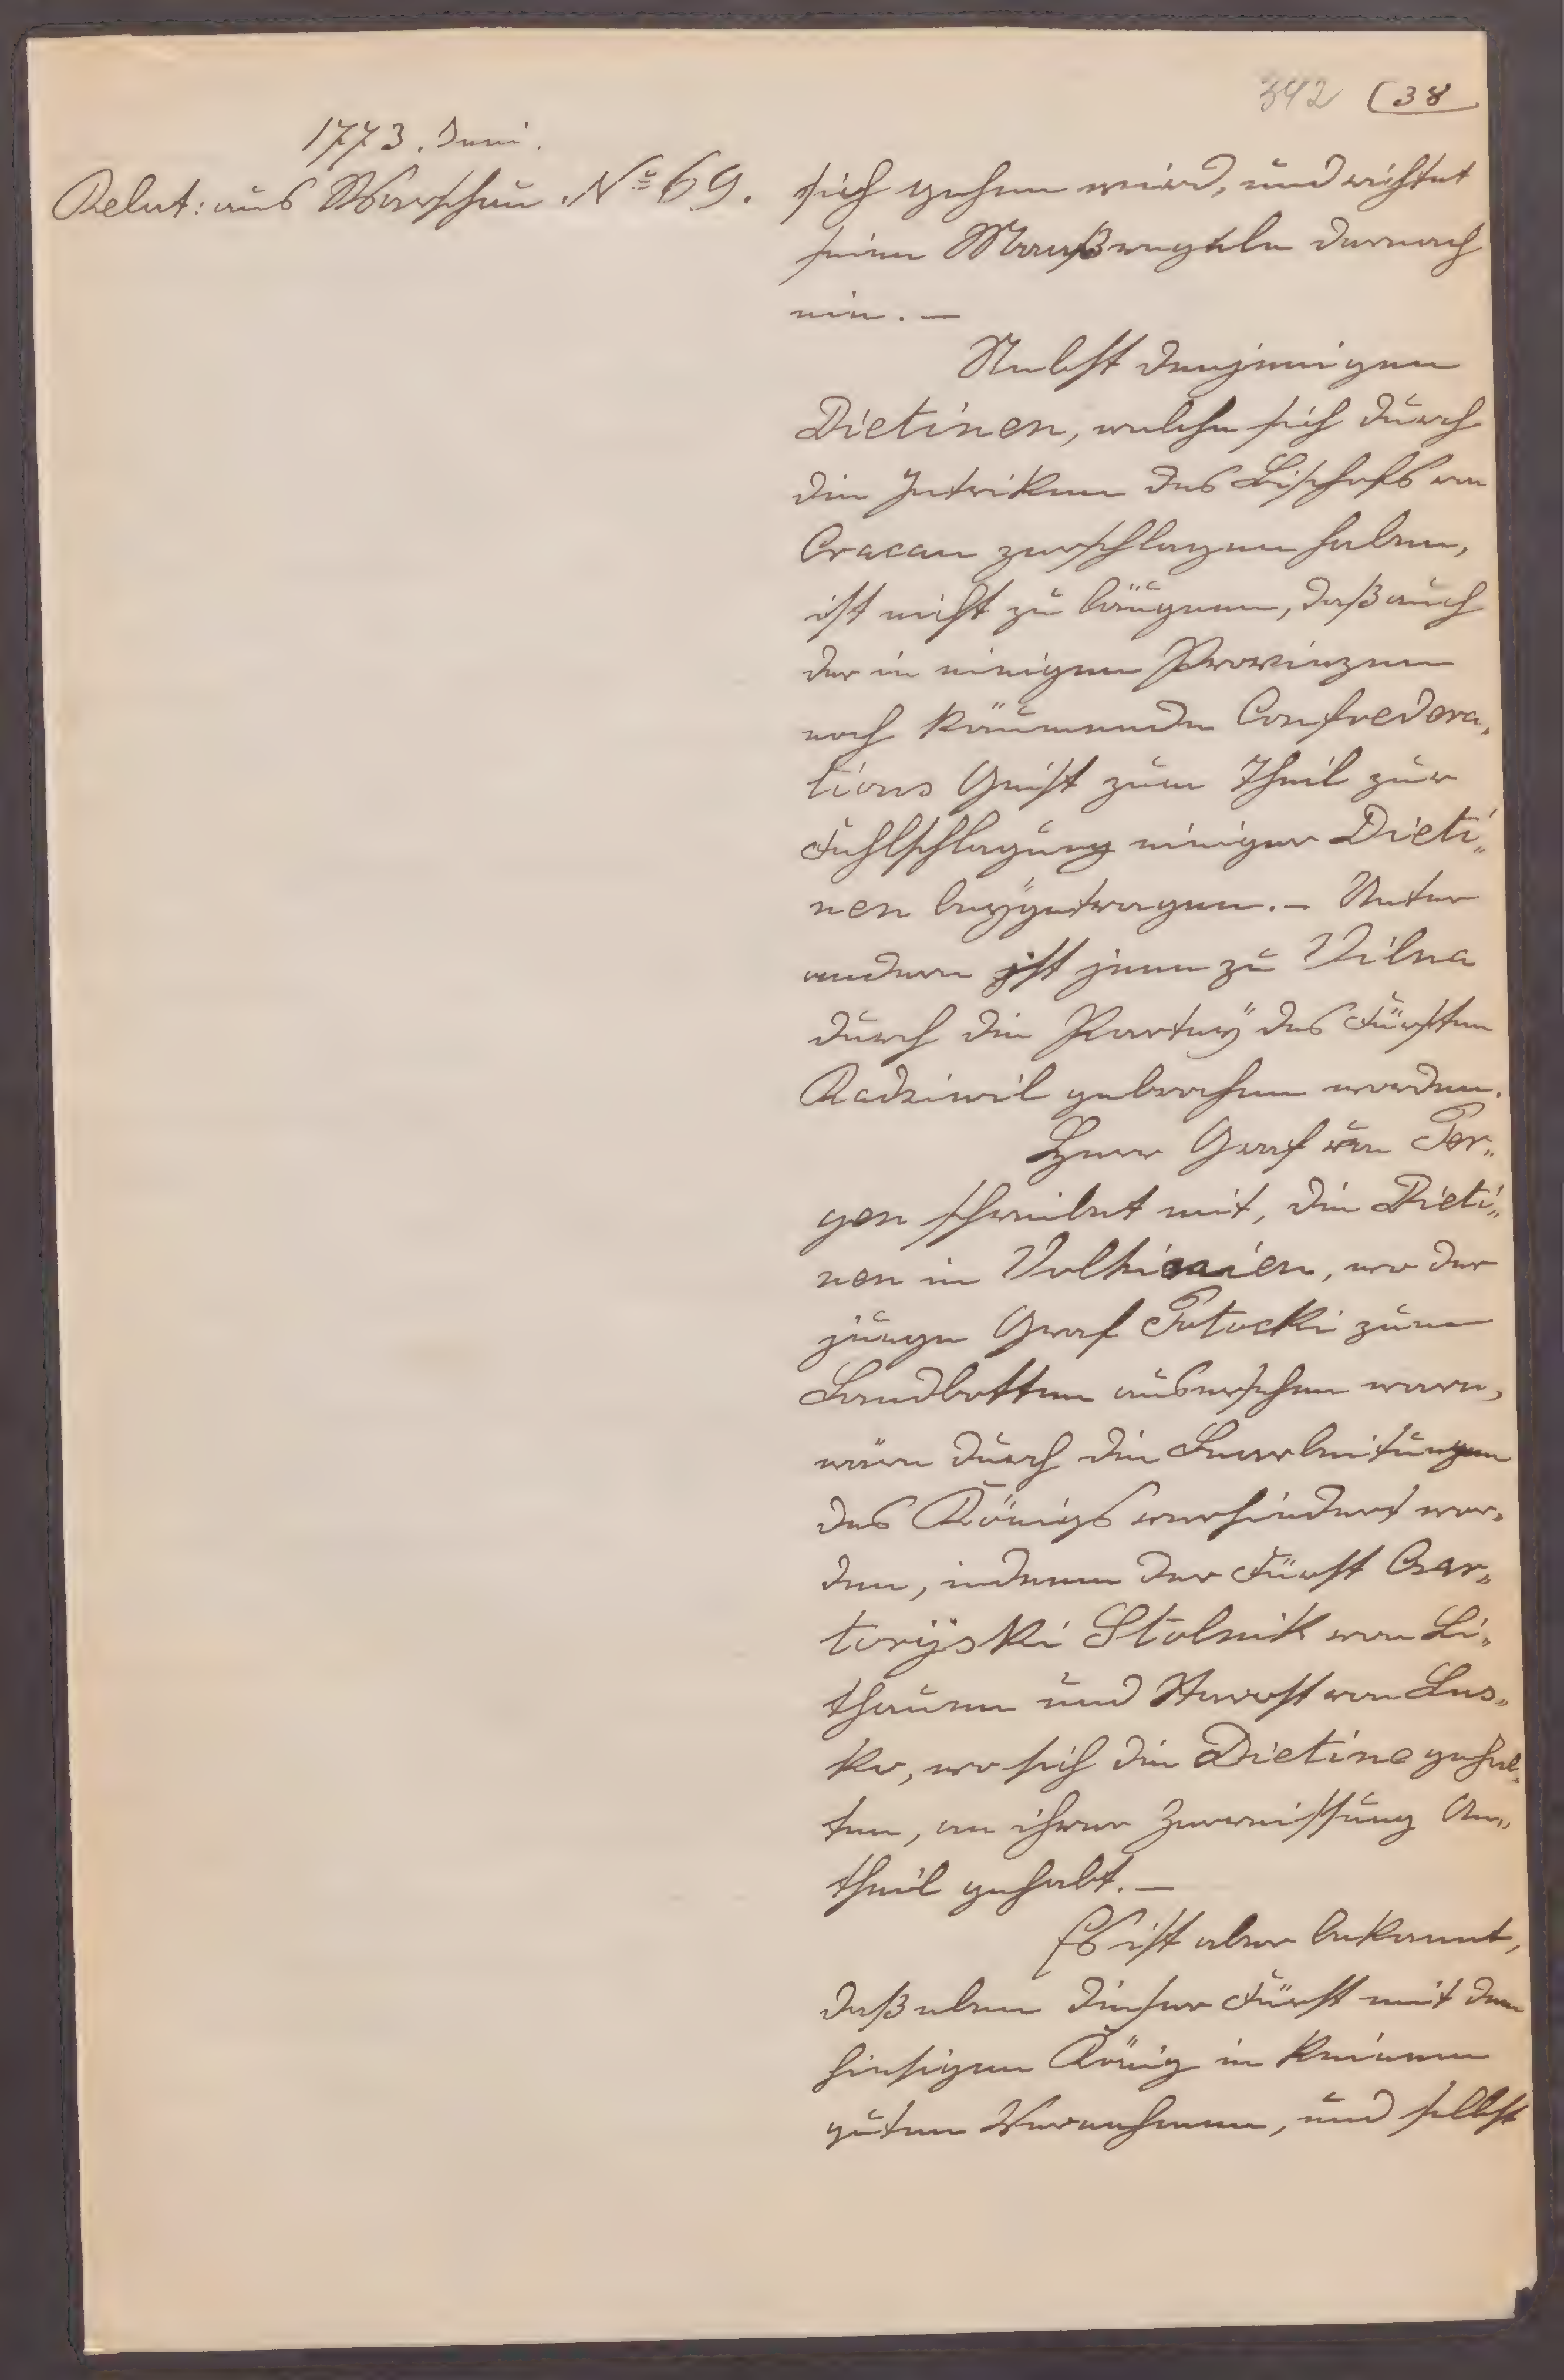 342 (38
1773. Juni.
Relat: aus Warschau Nº 69.
sich gehen wird, und richtet
seine Maaßregeln darnach
ein. —
Nebst denjenigen
Dietinen, welche sich durch
die Intriken des Bischofs von
Cracau zerschlagen haben,
ist nicht zu läügnen, daß auch
der in einigen Provinzen
noch käumende Confoedera„
tions Geist zum Theil zur
Fehlschlagung einiger Dieti„
nen beÿgetragen. — Unter
andern ist jene zu Vilna
durch die Partheÿ des Fürsten
Radziwil gebrochen worden.
Herr Graf von Per„
gen schreibet mit, die Dieti„
nen in Volhinien, wo der
junge Graf Potocki zum
Landbotten ausersehen ware,
wäre durch die Bearbeitungen
des Königs verhindert wor„
den, indeme der Fürst Czar„
torÿski Stolnik von Li„
thauen und Starost von Lus„
ko, wo sich die Dietine gehal„
ten, an ihrer Zerreissung An„
theil gehabt. —
Es ist aber bekannt,
daß eben dieser Fürst mit dem
hiesigen König in keinem
guten Vernehmen, und selbst